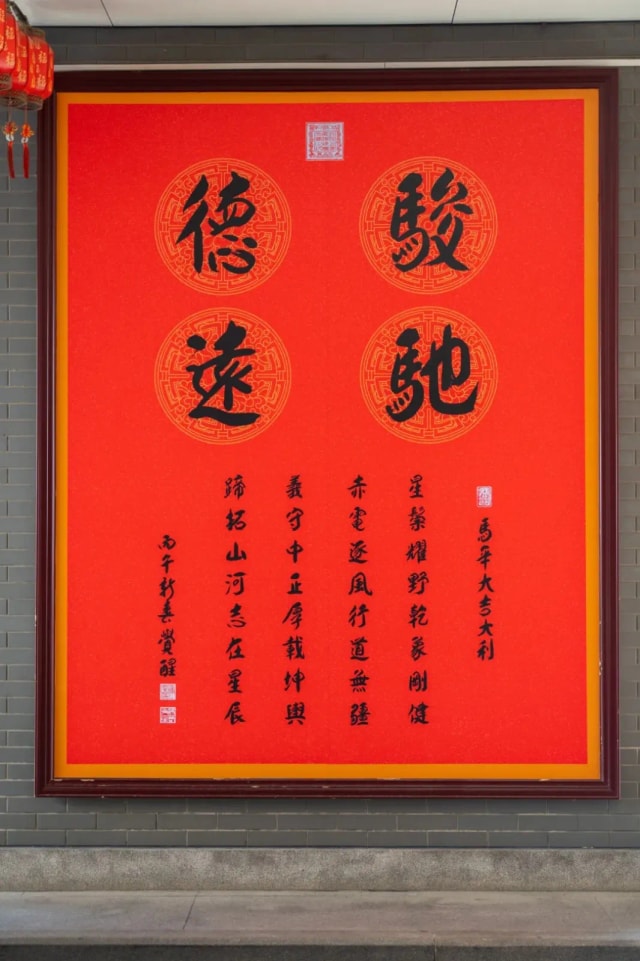 駿馳
德遠
馬年大吉大利
星鬃耀野乾象剛健
赤電逐風行道無疆
義守中正厚載坤輿
蹄拓山河志在星辰
丙午新春覺醒